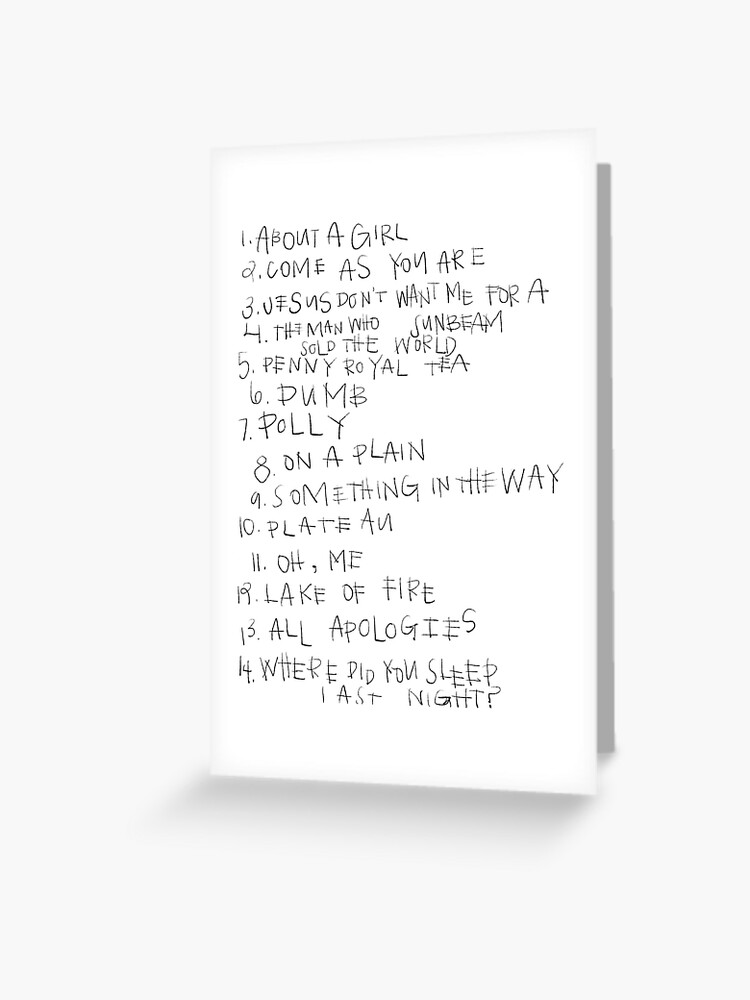 1. ABOUT A GIRL
2. COME AS YOU ARE
3. JESUS DON'T WANT ME FOR A
SUNBEAM
4. THE MAN WHO
SOLD THE WORLD
5. PENNY ROYAL TEA
6. DUMB
7. POLLY
8. ON A PLAIN
9. SOMETHING IN THE WAY
10. PLATEAU
11. OH, ME
12. LAKE OF FIRE
13. ALL APOLOGIES
14. WHERE DID YOU SLEEP
LAST NIGHT?